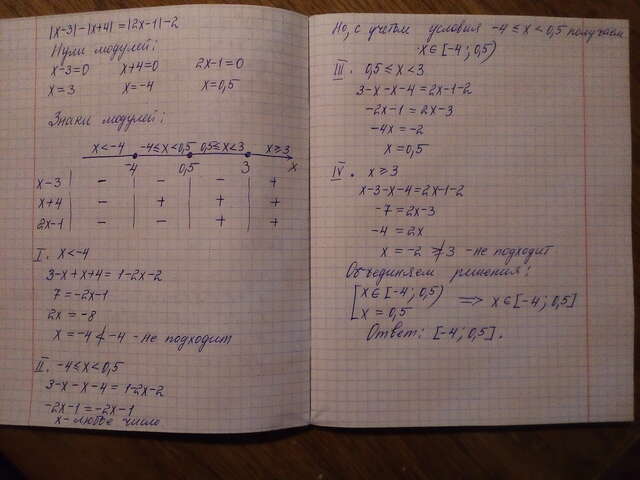 |x-3|-|x+4|=|2x-1|-2
Нули модулей:
x-3=0 x+4=0 2x-1=0
x=3 x=-4 x=0,5
Знаки модулей:
x<-4 -4≤x<0,5 0,5≤x<3 x≥3
-4 0,5 3 x
x-3 - - - +
x+4 - + + +
2x-1 - - + +
I. x<-4
3-x+x+4=1-2x-2
7=-2x-1
2x=-8
x=-4≮-4 - не подходит
II. -4≤x<0,5
3-x-x-4=1-2x-2
-2x-1=-2x-1
x-любое число
Но, с учетом условия -4≤x<0,5 получаем
x∈[-4;0,5)
III. 0,5≤x<3
3-x-x-4=2x-1-2
-2x-1=2x-3
-4x=-2
x=0,5
IV. x≥3
x-3-x-4=2x-1-2
-7=2x-3
-4=2x
x=-2≱3 - не подходит
Объединяем решения:
[x∈[-4;0,5)
x=0,5 => x∈[-4;0,5]
Ответ: [-4;0,5].